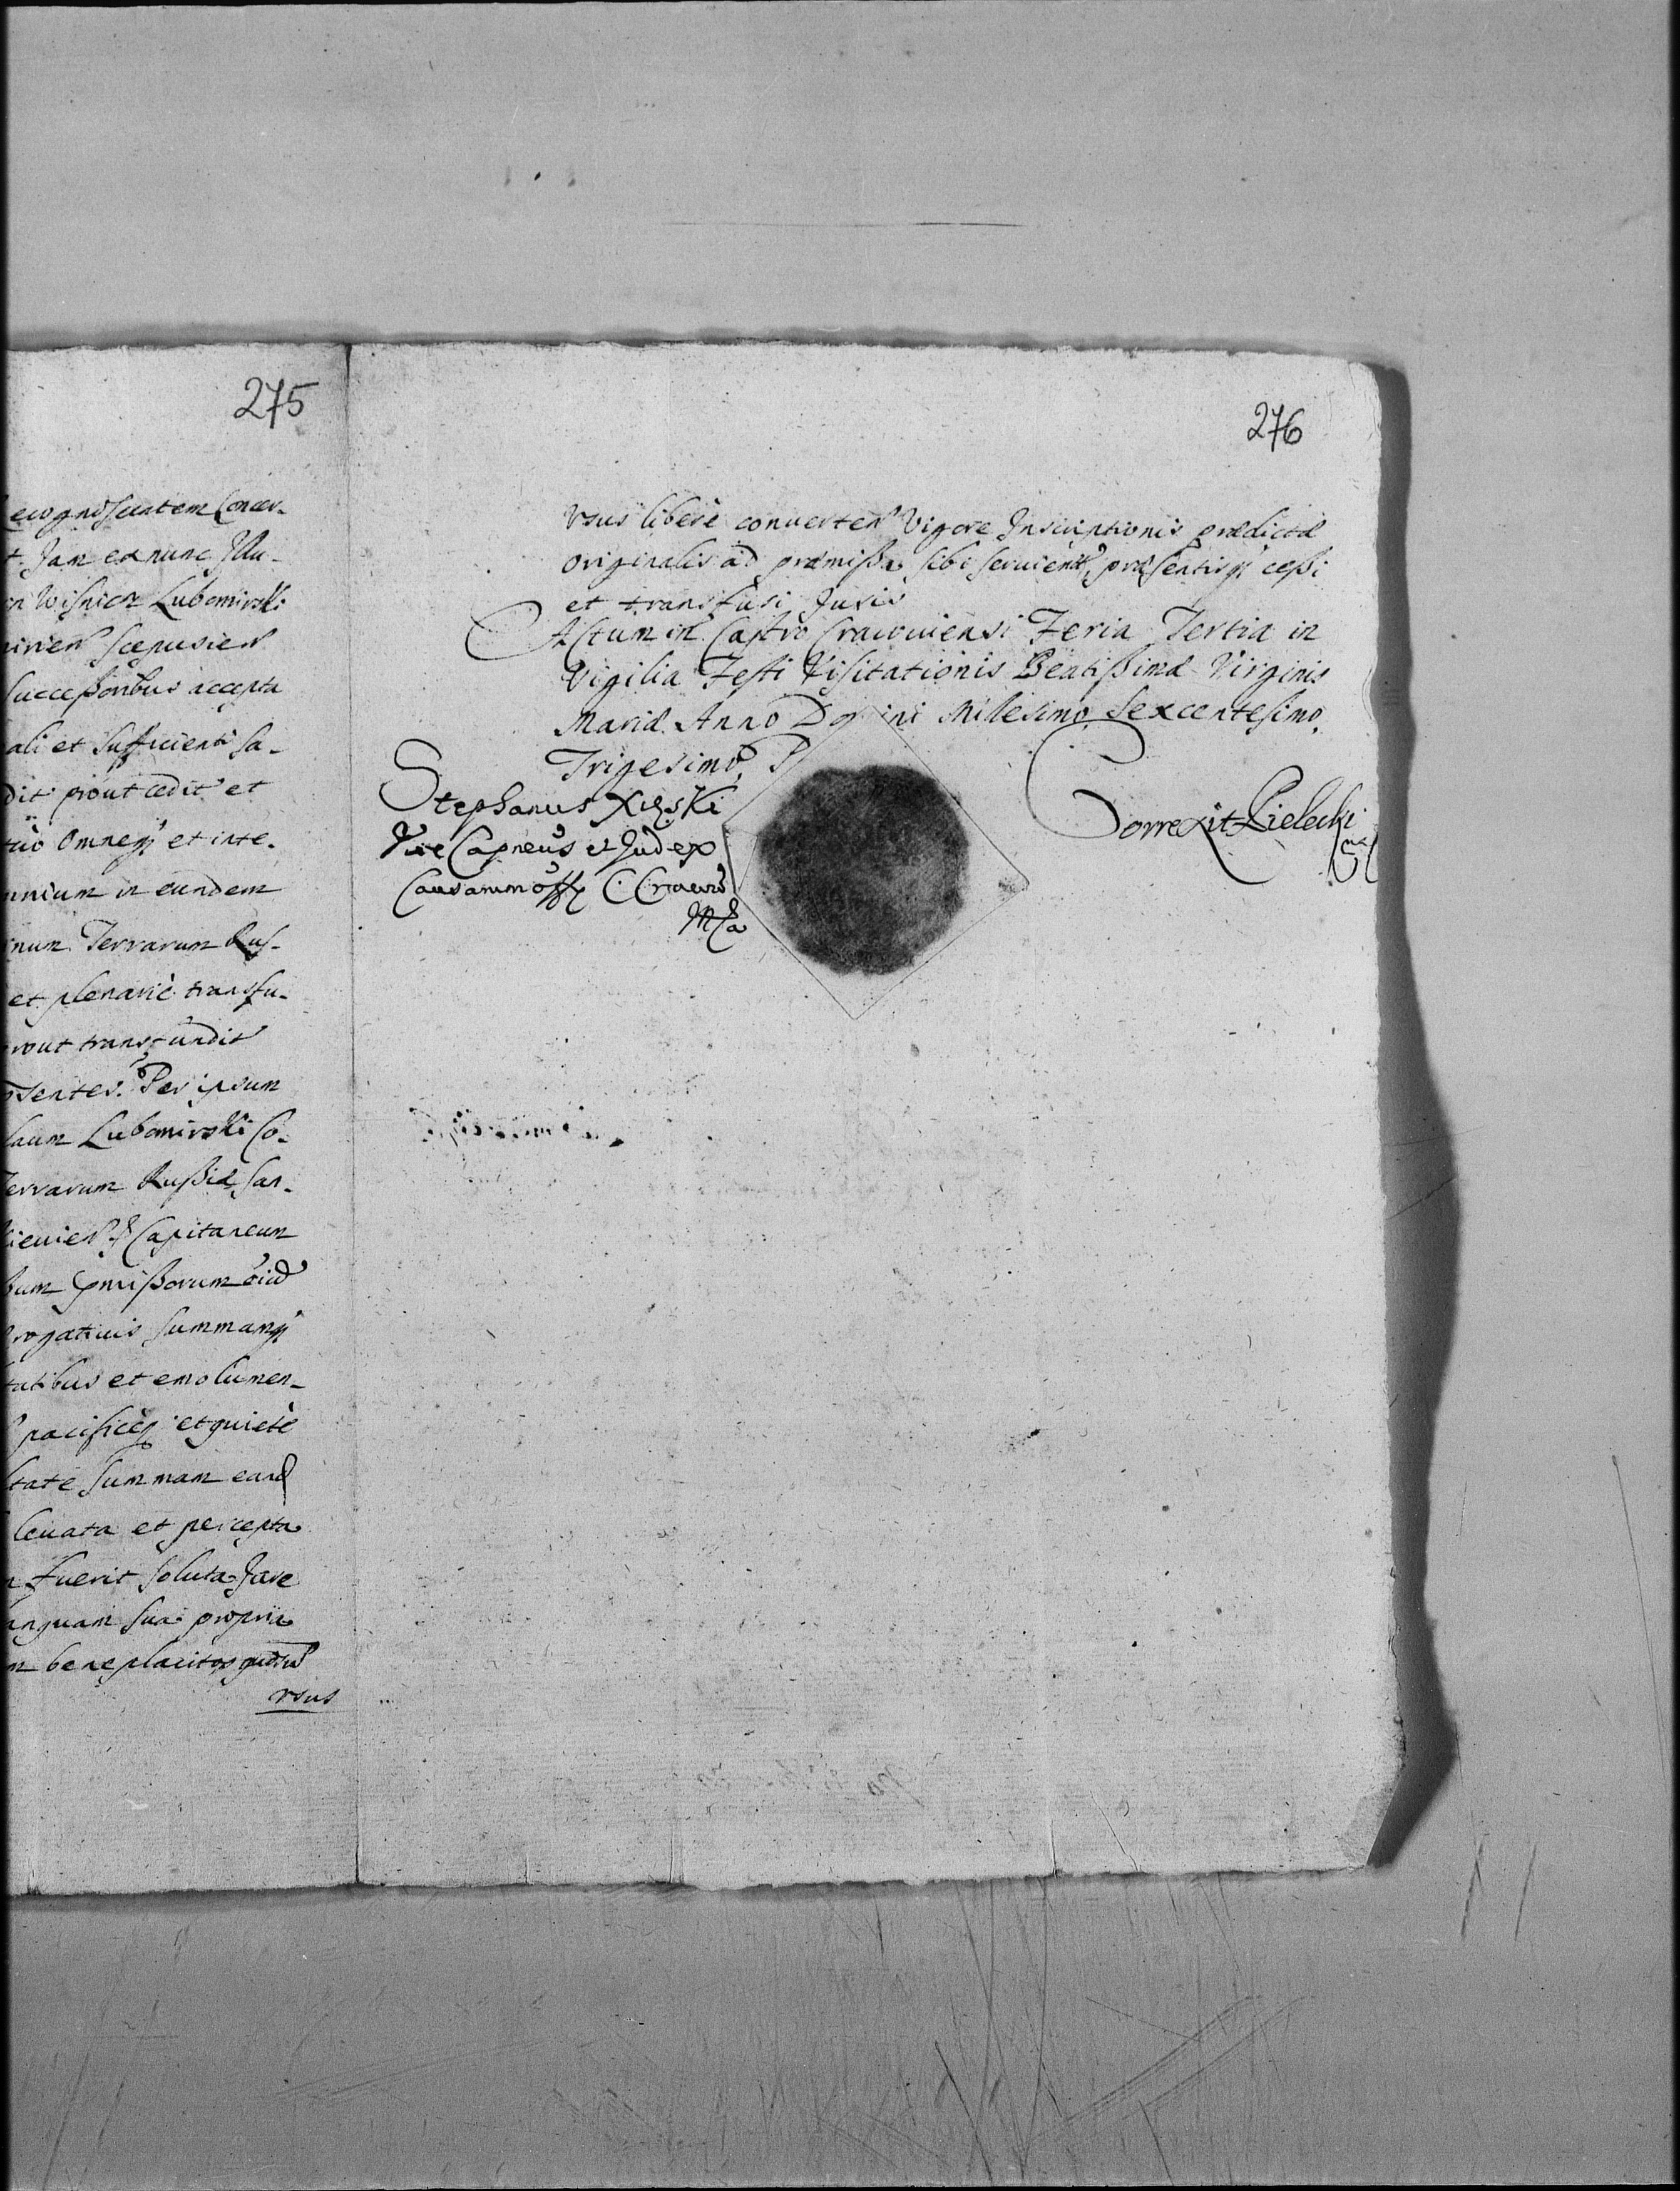 275
ecognoscentem Concer-
t. Jam ex nunc Illu-
in Wisnicz Lubomirski
Scepusien
Successoribus accepta
ali et sufficienti sa-
dit prout cedit et
omneq et inte-
mnium in eundem
num Terrarum Rus-
et plenarie transfu-
rout transfundit
sentes. Per ipsum
laum Lubomirski Co-
Terrarum Russiæ San-
Capitaneum
rogativis summamq
tatibus et emolumen-
pacificeq et quiete
tate summam eand
levata et percepta
n fuerit soluta Jure
anquam sua propria
m beneplacitos
vsus
276
Vsus liberè conuerten Vigore Inscriptionis prædictæ
originalis ad præmissa sibi seruient, præsentisq cessi
et transfusi Juris
Actum in Castro Cracouiensi Feria Tertia in
Vigilia Festi Visitationis Beatissimæ Virginis
Mariæ. Anno Domini Millesimo Sexcentesimo
Trigesimo P
Stephanus Xięski
Vice Capneus et Judex
Causarum off C. Cracou
Mp
Correxit Pielecki
mp